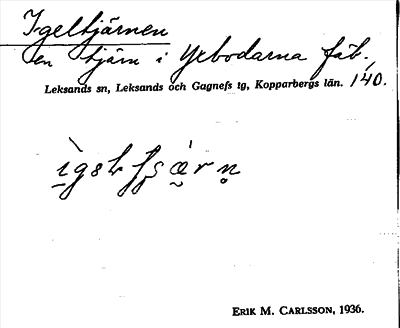 Igeltjärnen
en tjärn i Yxbodarna fäb.
Leksands sn, Leksands och Gagnefs tg, Kopparbergs län. 140.
ERIK M. CARLSSON, 1936.